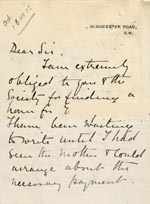 GLOUCESTER ROAD,
S.W.
Dear Sir,
I am extremely
obliged to you & the
Society for finding a
home for
I have been waiting
to write until I had
seen the Mother & could
arrange about the
necessary payment.